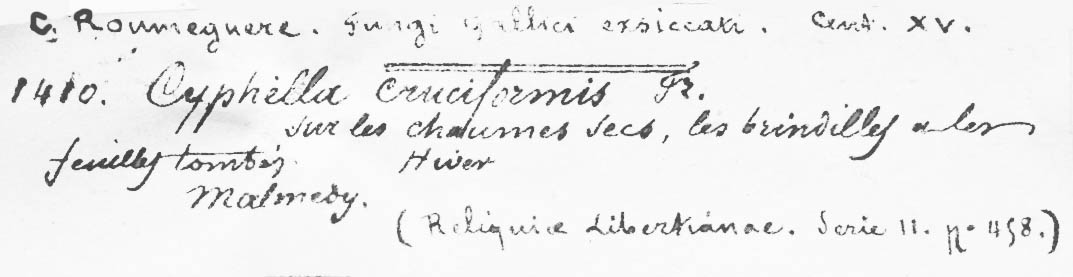 C. Roumeguere. Fungi gallici exsiccati. Cent. XV.
1410. Cyphella cruciformis Fr.
sur les chaumes secs, les brindilles & les
feuilles tombés. Hiver
Malmedy.
(Reliquiæ Libertiánae. Serie II. no 458.)